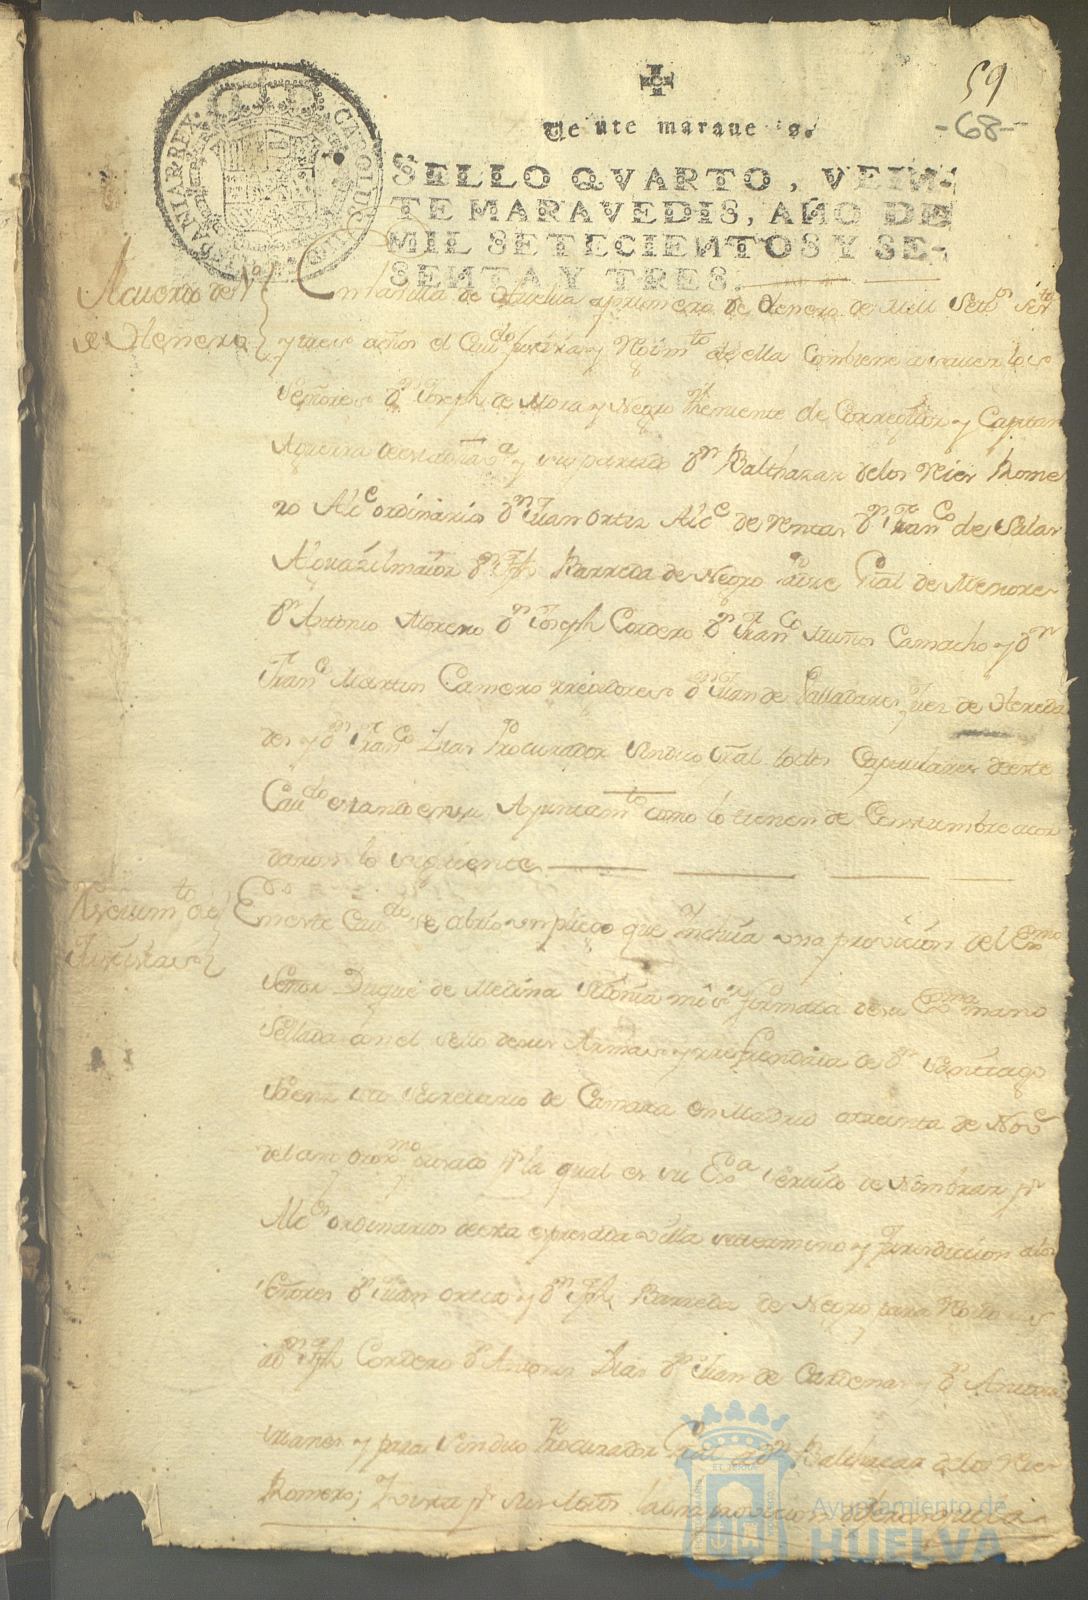 59
-68-
Veinte maravedis.
SELLO QVARTO, VEIN-
TE MARAVEDIS, AÑO DE
MIL SETECIENTOS Y SE-
SENTA Y TRES.
CAROLUS HISPANIAR REX
Acuerdo de 1º
de Henero
En la villa de Huelva a primero de Henero de mill Setts. Sesta
y tres años el Cavdo Justicia y Regimto de ella Combiene a saver los
Señores Dn Joseph de Mora y Negro Theniente de Corregidor y Capitan
Aguerra de esta dha vª y su partido Dn Balthazar de los Rios Rome
ro Alce ordinario Dn Juan Ortiz Alce de Ventas Dn Franco de Salas
Alguázil maior Dn Jph Barreda de Negro Padre Gral de Menores
Dn Antonio Moreno Dn Joseph Cordero Dn Franco Muños Camacho y Dn
Franco Martin Camero rrejidores Dn Juan de Valladares Juez de Hereda
des y Dn Franco Dias Procurador Sindico Gral todos Capitulares de este
Cavdo estando en su Ayuntamto como lo tienen de Constumbre acor
daron lo siguiente
Resevimto de
Justicias
En este Cavdo se abrio un pliego que Incluía una provicion del Exmo
Señor Duque de Medina Sidonia mi Sr firmada de su Exma mano
Sellada con el sello de sus Armas y rrefrendada de Dn Santiago
Saenz su Secretario de Camara en Madrid a treinta de Nove
del año proxmo pasado pr la qual es su Exa servido de Nombrar pr
Alces ordinarios de esta expresada villa su termino y Jurisdiccion a los
Señores Dn Juan Ortiz y Dn Jph Barreda de Negro para Rexidores
a Dn Jph Cordero Dn Antonio Dias Dn Juan de Cardenas y Dn Antonio
y para Sindico Procurador Gral a Dn Balthazar de los Rios
Romero; Y vista pr Sus
Ayuntamiento de
HUELVA